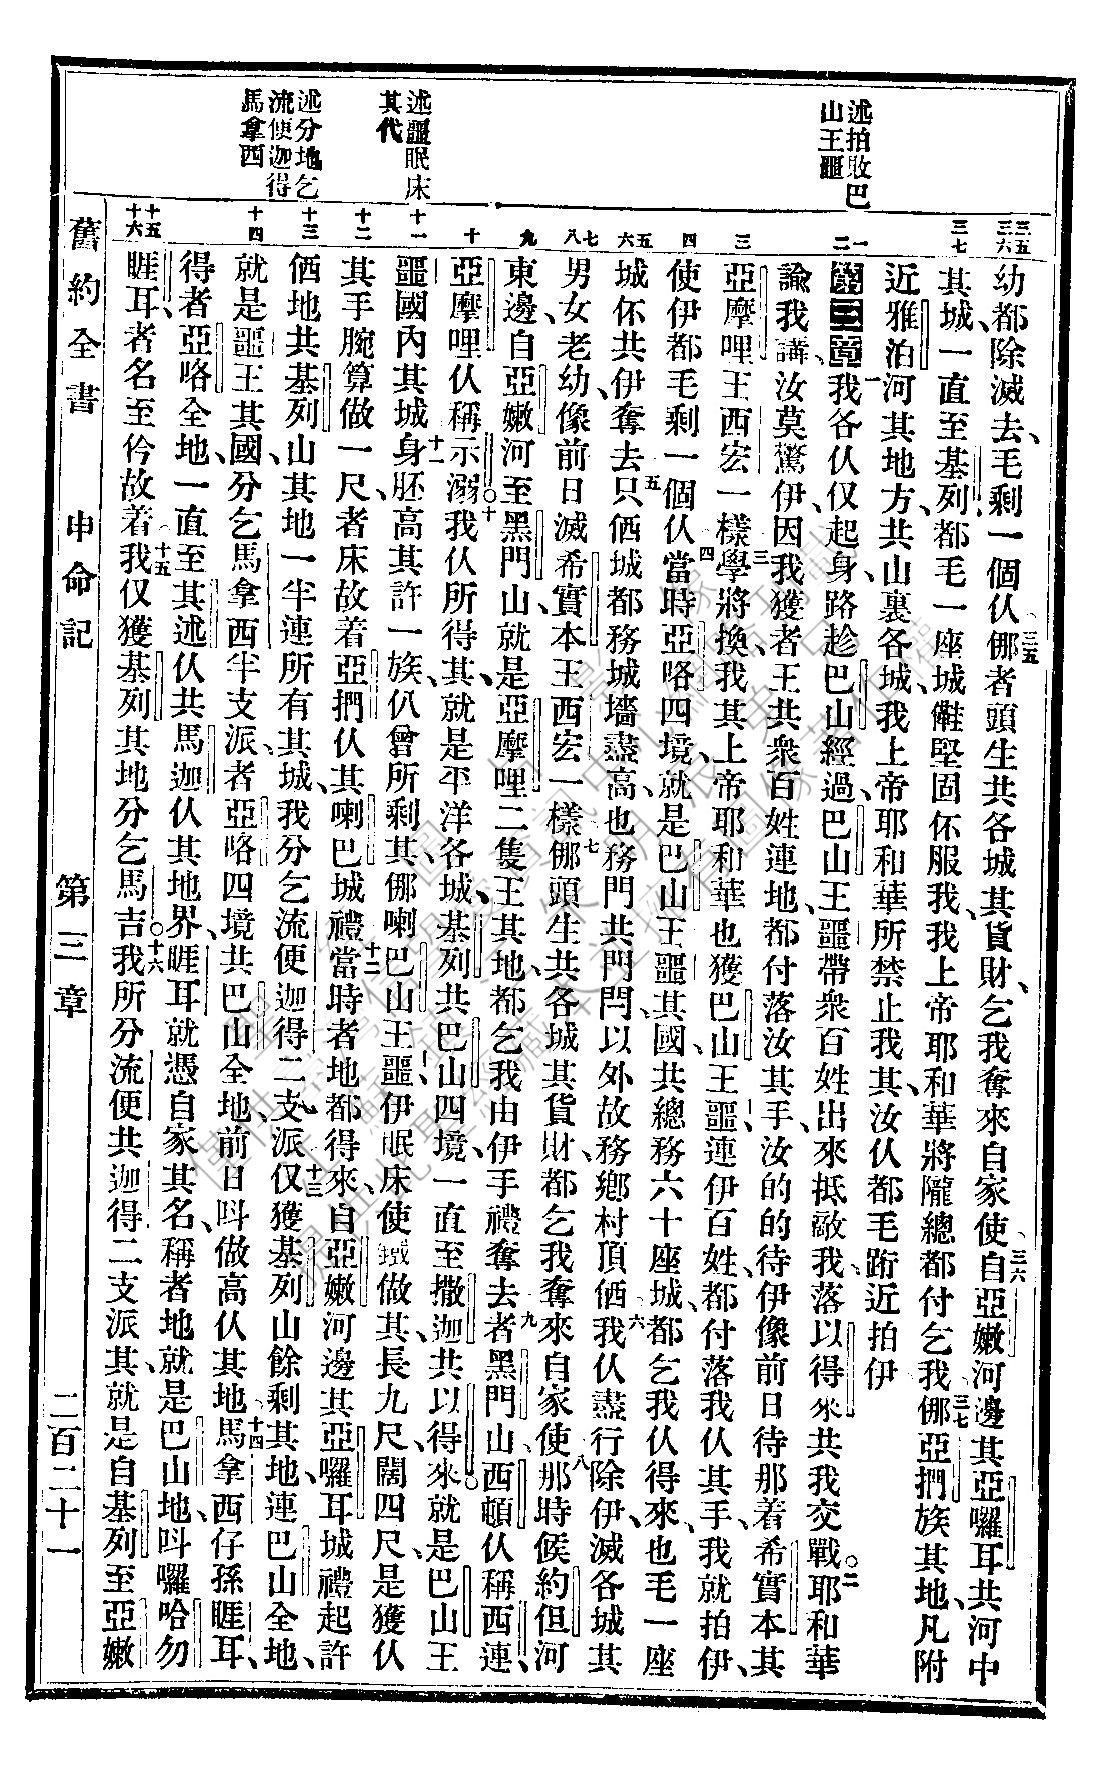 述拍敗巴
山王噩
述噩眠床
其代
述分地乞
流使迦得
馬拿西
三五
三六
三七
一
二
三
四
五
六
七
八
九
十
十一
十二
十三
十四
十五
十六
幼都除滅去、毛剩一個仈三五㑚者頭生共各城其貨財、乞我奪來自家使、三六自亞嫩河邊其亞囉耳共河中
其城、一直至基列都毛一座城㒕堅固伓服我、我上帝耶和華將隴總都付乞我、三七㑚亞捫族其地、凡附
近雅泊河其地方、共山裏各城、我上帝耶和華所禁止我其、汝仈都毛跡近拍伊
第三章一我各仈仅起身、路趁巴山經過、巴山王噩帶衆百姓出來抵敵我、落以得來共我交戰○二耶和華
諭我講、汝莫驚伊、因我三獲者王共衆百姓連地、都付落汝其手、汝的的待伊像前日待那着希實本其
亞摩哩王西宏一樣、三學將換我其上帝耶和華也獲巴山王噩、連伊百姓、都付落我仈其手、我就拍伊、
使伊都毛剩一個仈、四當時亞咯四境、就是巴山王噩其國、共總務六十座城、都乞我仈得來、也毛一座
城伓共伊奪去、五只㐔城都務城墻盡高、也務門共門閂、以外故務鄉村頂㐔、六我仈盡行除伊、滅各城其
男女老幼、像前日滅希實本王西宏一樣、七㑚頭生共各城其貨財、都乞我奪來自家使、八那時候約但河
東邊、自亞嫩河至黑門山、就是亞摩哩二隻王其地、都乞我由伊手禮奪去、九者黑門山西頓仈稱西連、
亞摩哩仈稱示溺○十我仈所得其、就是平洋各城、基列共巴山四境、一直至撒迦共以得來、就是巴山王
噩國內其城、十一身胚高其許一族、仈曾所剩其、㑚喇巴山王噩、伊眠床使鐵做其、長九尺、闊四尺、是獲仈
其手腕算做一尺、者床故着亞捫仈其喇巴城禮、十二當時者地都得來、自亞嫩河邊其亞囉耳城禮起、許
㐔地共基列山其地一半、連所有其城、我分乞流便迦得二支派、十三仅獲基列山餘剩其地、連巴山全地、
就是噩王其國、分乞馬拿西半支派、者亞咯四境共巴山全地、前日呌做高仈其地、十四馬拿西仔孫睚耳、
得者亞咯全地、一直至其述仈共馬迦仈其地界、睚耳就憑自家其名、稱者地、就是巴山地、呌囉哈勿
睚耳、者名至仱故着、十五我仅獲基列其地、分乞馬吉○十六我所分流便共迦得二支派其、就是自基列至亞嫩
舊約全書　申命記　第三章　二百二十一